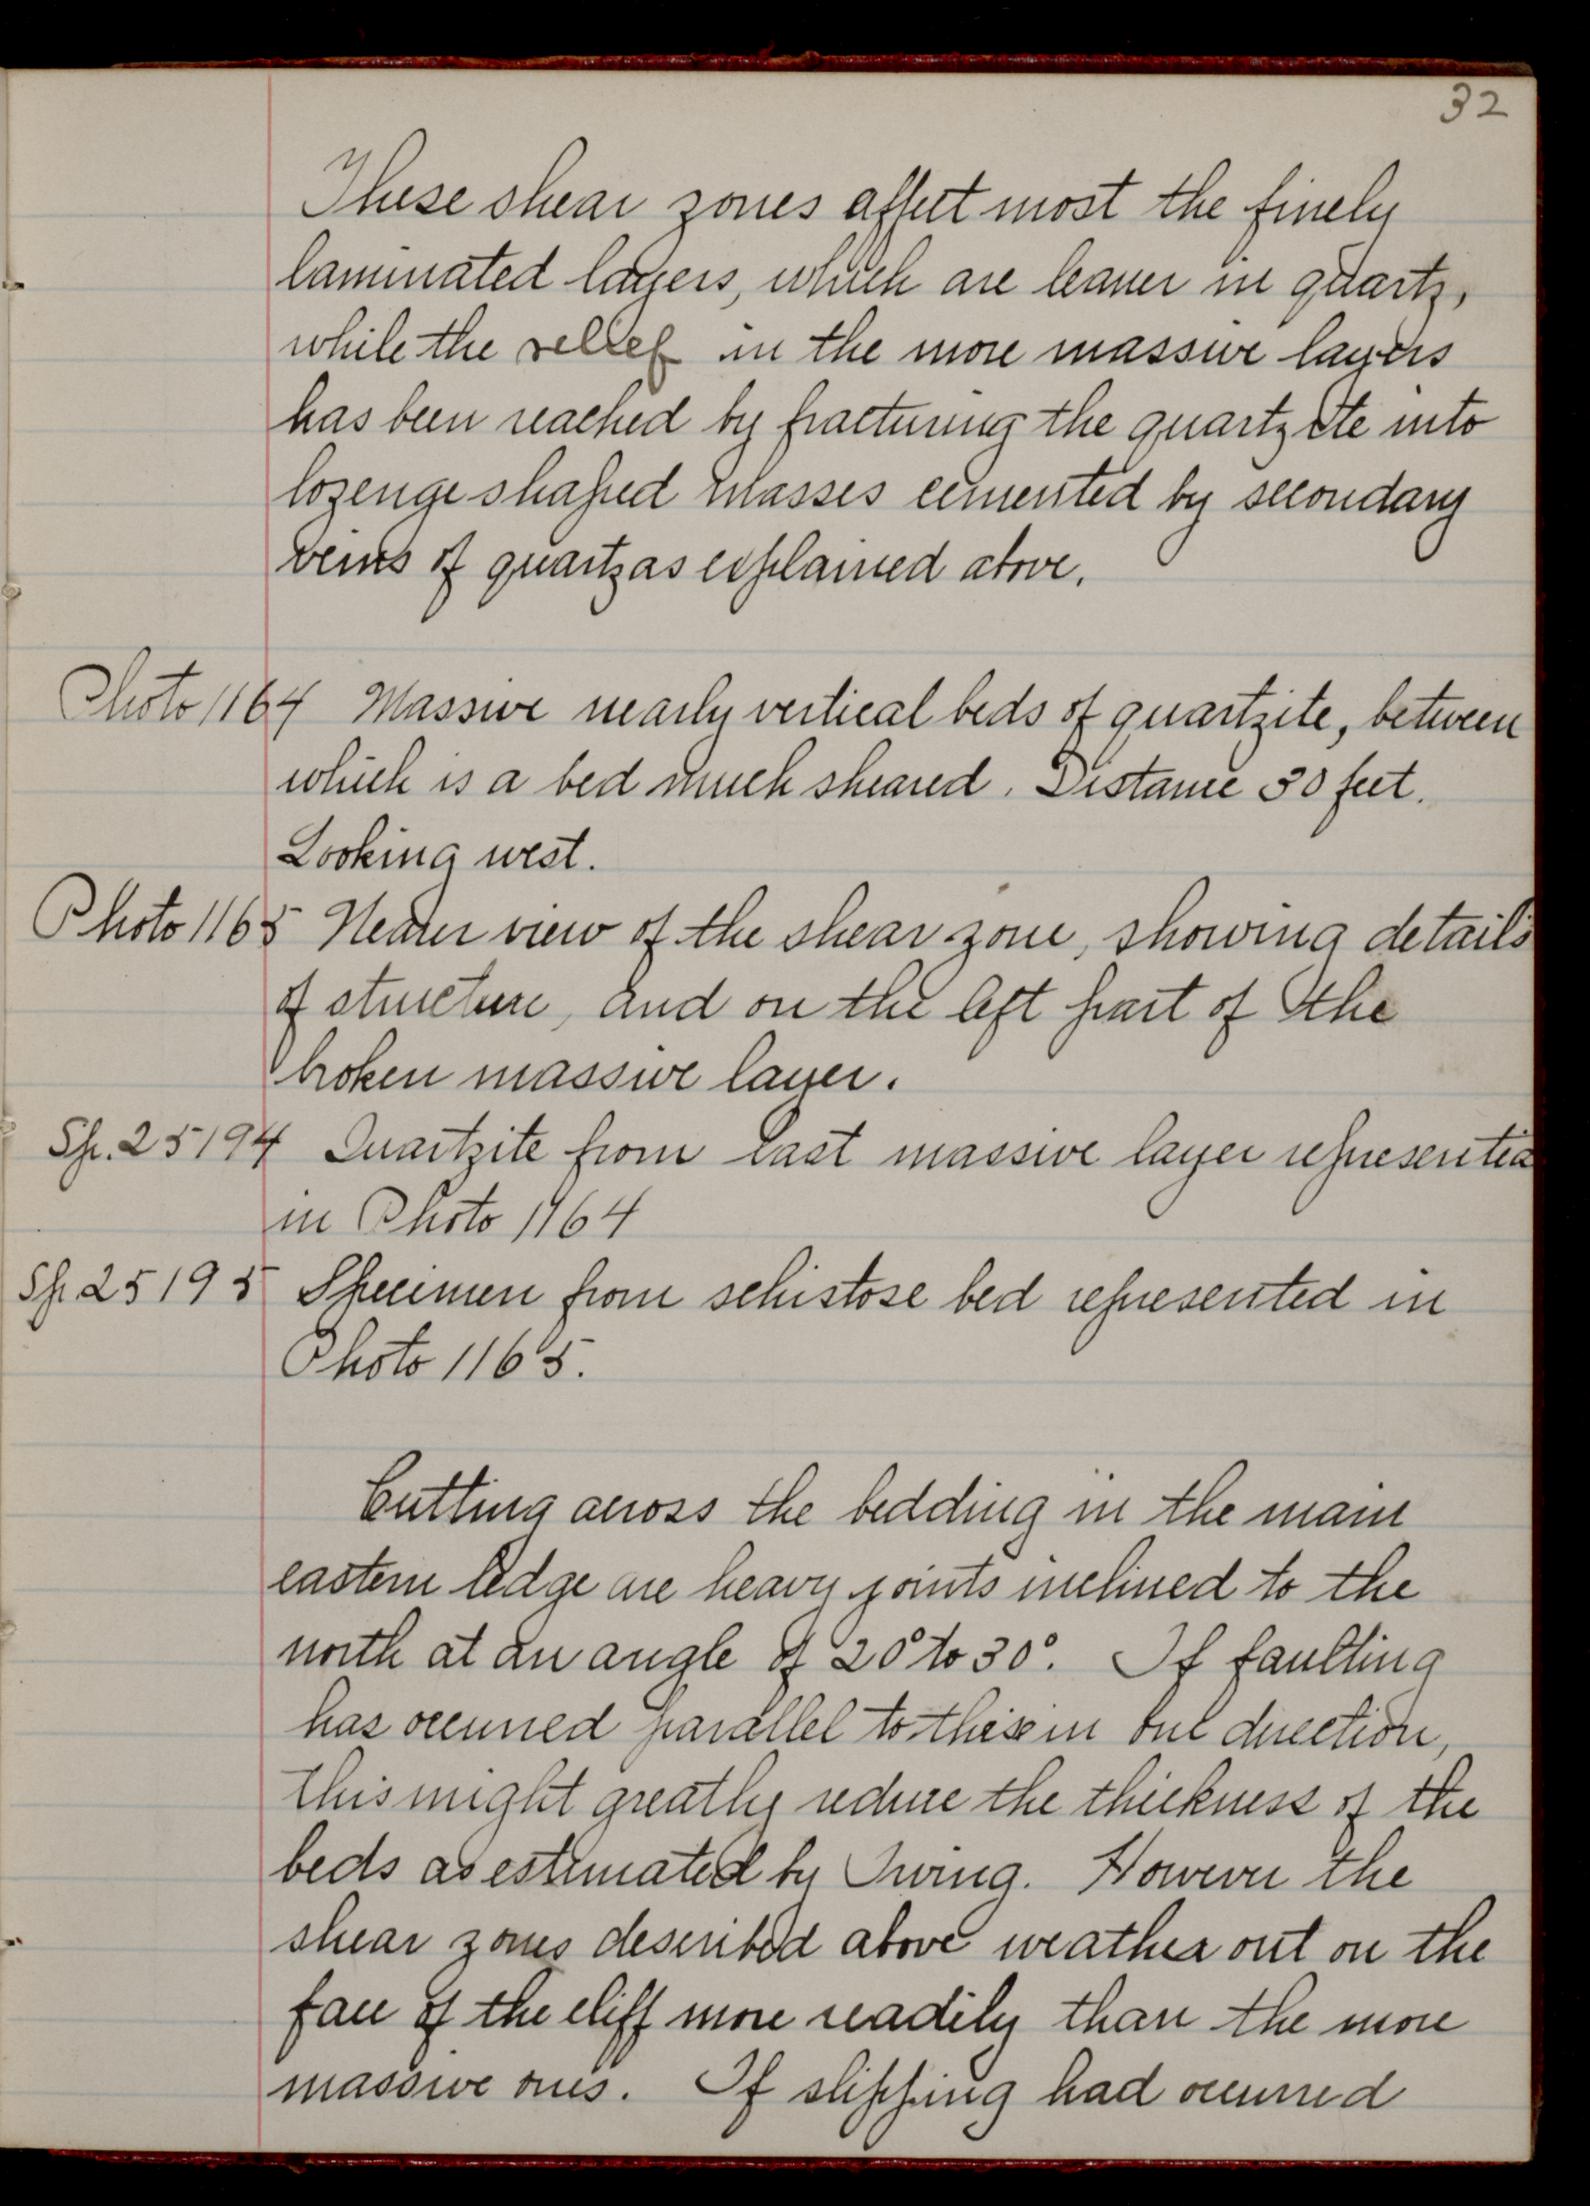 32
These shear zones affect most the finely
laminated layers, which are leaner in quartz,
while the relief in the more massive layers
has been reached by fracturing the quartzite into
lozenge shaped masses cemented by secondary
veins of quartz as explained above.
Photo 1164 Massive nearly vertical beds of quartzite, between
which is a bed much sheared. Distance 30 feet.
Looking west.
Photo 1165 Nearer view of the shear zone, showing details
of structure, and on the left part of the
broken massive layer.
Sp. 25194 Quartzite from east massive layer represented
in Photo 1164
Sp. 25195 Specimen from schistose bed represented in
Photo 1165.
Cutting across the bedding in the main
eastern ledge are heavy joints inclined to the
north at an angle of 20° to 30°. If faulting
has occurred parallel to these in one direction,
this might greatly reduce the thickness of the
beds as estimated by Irving. However the
shear zones described above weather out on the
face of the cliff more readily than the more
massive ones. If slipping had occurred